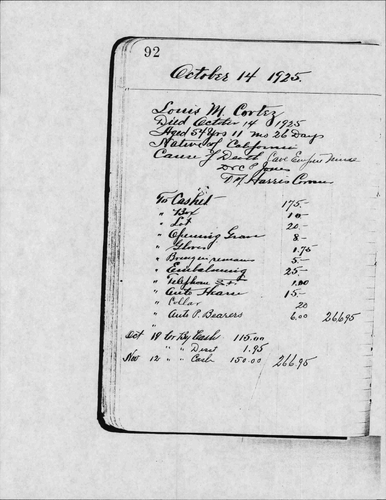 92
October 14 1925.
Louis M. Cortez
Died October 14 1925
Aged 54 Yrs 11 mo 26 Days
Native of California
Cause of Death
Dr C P Jones
T A Harris Coroner
To Casket 175.-
" Box 10-
" Lot 20-
" Opening Grave 8-
" Gloves 1.75
" Bringing remains 5.-
" Embalming 25-
" Telephone 1.00
" Auto Hearse 15-
" Collar 20
" Auto P. Bearers 6.00 266.95
"
Oct 18 Cr By Cash 115.00
" " Disct 1.95
Nov 12 " " Cash 150.00 266.95